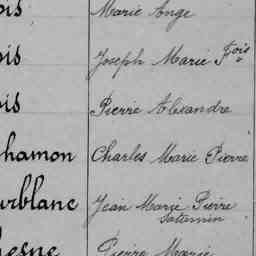 ois Marie Ange
ois Joseph Marie Fois
ois Pierre Alexandre
hamon Charles Marie Pierre
urblanc Jean Marie Pierre
Saturnin
hesne Pierre Marie